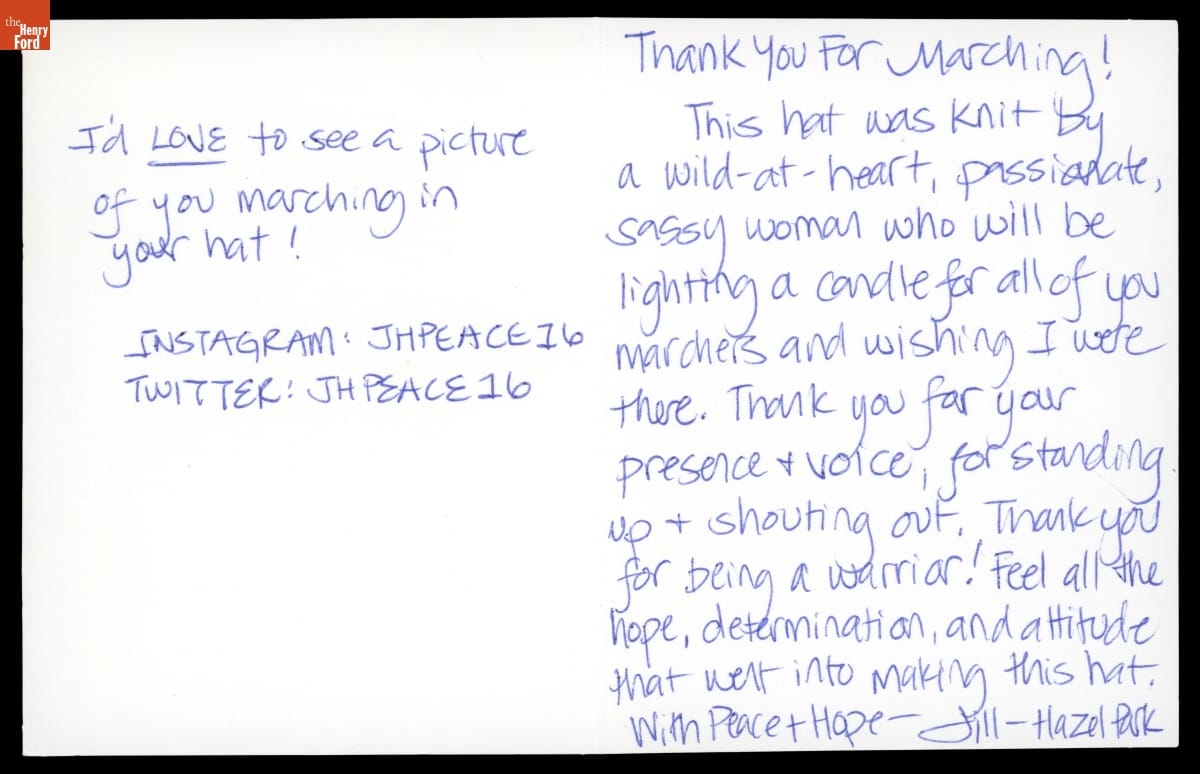 the
Henry
Ford
I'd LOVE to see a picture
of you marching in
your hat!
INSTAGRAM: JHPEACE16
TWITTER: JHPEACE16
Thank You For Marching!
This hat was knit by
a wild-at-heart, passionate,
sassy woman who will be
lighting a candle for all of you
marchers and wishing I were
there. Thank you for your
presence + voice, for standing
up + shouting out. Thank you
for being a warrior! Feel all the
hope, determination, and attitude
that went into making this hat.
With Peace + Hope - Jill - Hazel Park